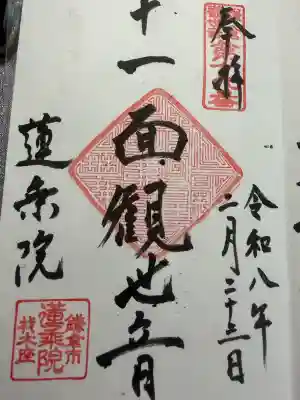 奉拝
令和八年
二月二十三日
十一面観世音
蓮乗院
鎌倉市
蓮乗院
材木座